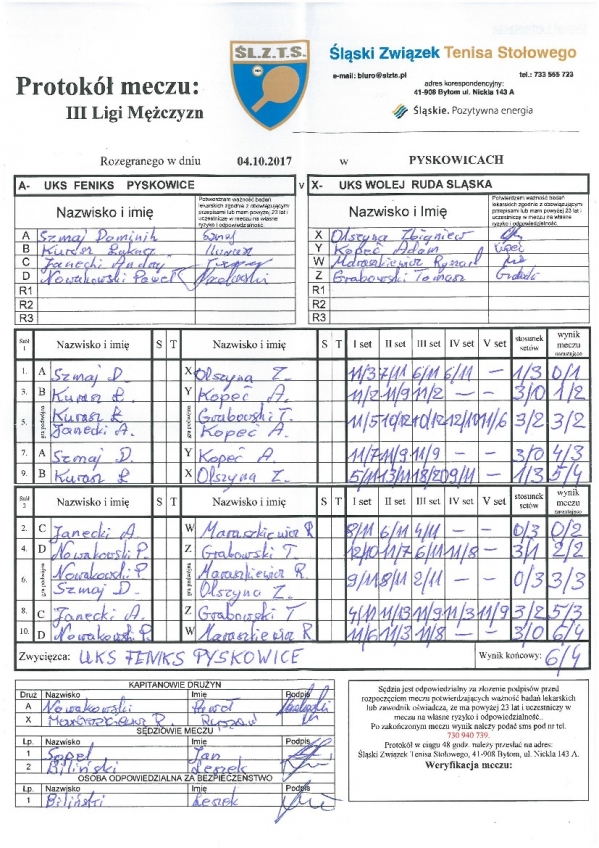 ŚL.Z.T.S.
Śląski Związek Tenisa Stołowego
e-mail: biuro@slzts.pl tel.: 733 565 723
adres korespondencyjny:
41-908 Bytom ul. Nickla 143 A
Śląskie. Pozytywna energia
Protokół meczu:
III Ligi Mężczyzn
Rozegranego w dniu 04.10.2017 w PYSKOWICACH
A- UKS FENIKS PYSKOWICE v X- UKS WOLEJ RUDA SLĄSKA
Nazwisko i imię Potwierdzam ważność badań lekarskich zgodnie z obowiązującymi przepisami lub mam powyżej 23 lat i uczestniczę w meczu na własne ryzyko i odpowiedzialność. Nazwisko i imię Potwierdzam ważność badań lekarskich zgodnie z obowiązującymi przepisami lub mam powyżej 23 lat i uczestniczę w meczu na własne ryzyko i odpowiedzialność.
A Szmaj Dominik X Olszyna Zbigniew
B Kurasz Łukasz Y Kopeć Adam
C Janecki Andrzej W Maraszkiewicz Ryszard
D Nowakowski Paweł Z Grabowski Tomasz
R1 R1
R2 R2
R3 R3
Stół 1 Nazwisko i imię S T Nazwisko i imię S T I set II set III set IV set V set stosunek setów wynik meczu narastająco
1. A Szmaj D. X Olszyna Z. 11/3 7/11 6/11 6/11 – 1/3 0/1
3. B Kurasz Ł. Y Kopeć A. 11/2 11/9 11/2 – – 3/0 1/2
5. gra podwójna Kurasz Ł. Janecki A. gra podwójna Grabowski T. Kopeć A. 11/5 10/12 10/12 12/10 11/6 3/2 3/2
7. A Szmaj D. Y Kopeć A. 11/7 11/9 11/9 – – 3/0 4/3
9. B Kurasz Ł X Olszyna Z. 5/11 11/13 18/20 9/11 – 1/3 5/4
Stół 2 Nazwisko i imię S T Nazwisko i imię S T I set II set III set IV set V set stosunek setów wynik meczu narastająco
2. C Janecki A. W Maraszkiewicz R. 8/11 6/11 4/11 – – 0/3 0/2
4. D Nowakowski P. Z Grabowski T. 12/10 11/7 6/11 11/8 – 3/1 2/2
6. gra podwójna Nowakowski P. Szmaj D. gra podwójna Maraszkiewicz R. Olszyna Z. 9/11 8/11 2/11 – – 0/3 3/3
8. C Janecki A. Z Grabowski T 4/11 11/13 11/9 11/3 11/9 3/2 5/3
10. D Nowakowski P. W Maraszkiewicz R 11/6 11/3 11/8 – – 3/0 6/4
Zwycięzca: UKS FENIKS PYSKOWICE Wynik końcowy: 6/4
KAPITANOWIE DRUŻYN
Druż Nazwisko Imię Podpis
A Nowakowski Paweł
X Maraszkiewicz R. Ryszard
SĘDZIOWIE MECZU
Lp. Nazwisko Imię Podpis
1 Sopel Jan
2 Biliński Leszek
OSOBA ODPOWIEDZIALNA ZA BEZPIECZEŃSTWO
Lp. Nazwisko Imię Podpis
1 Biliński Leszek
Sędzia jest odpowiedzialny za złożenie podpisów przed
rozpoczęciem meczu potwierdzających ważność badań lekarskich
lub zawodnik oświadcza, że ma powyżej 23 lat i uczestniczy w
meczu na własne ryzyko i odpowiedzialność.
Po zakończonym meczu wynik należy podać sms pod nr tel.
730 940 739.
Protokół w ciągu 48 godz. należy przesłać na adres:
Śląski Związek Tenisa Stołowego, 41-908 Bytom, ul. Nickla 143 A.
Weryfikacja meczu: